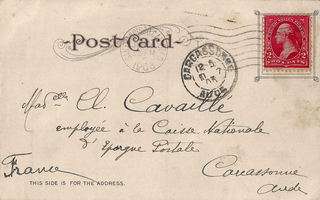 Post Card
CARCASSONNE
AUDE
Madelle Cl. Cavaillé
employée à la Caisse Nationale
d'Epargne Postale
Carcassonne
Aude
France
THIS SIDE IS FOR THE ADDRESS.